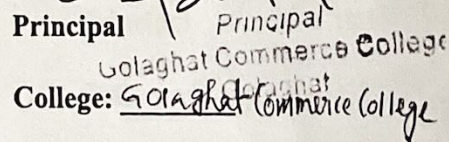 Principal Principal
Golaghat Commerce College
Golaghat
College: Golaghat Commerce College